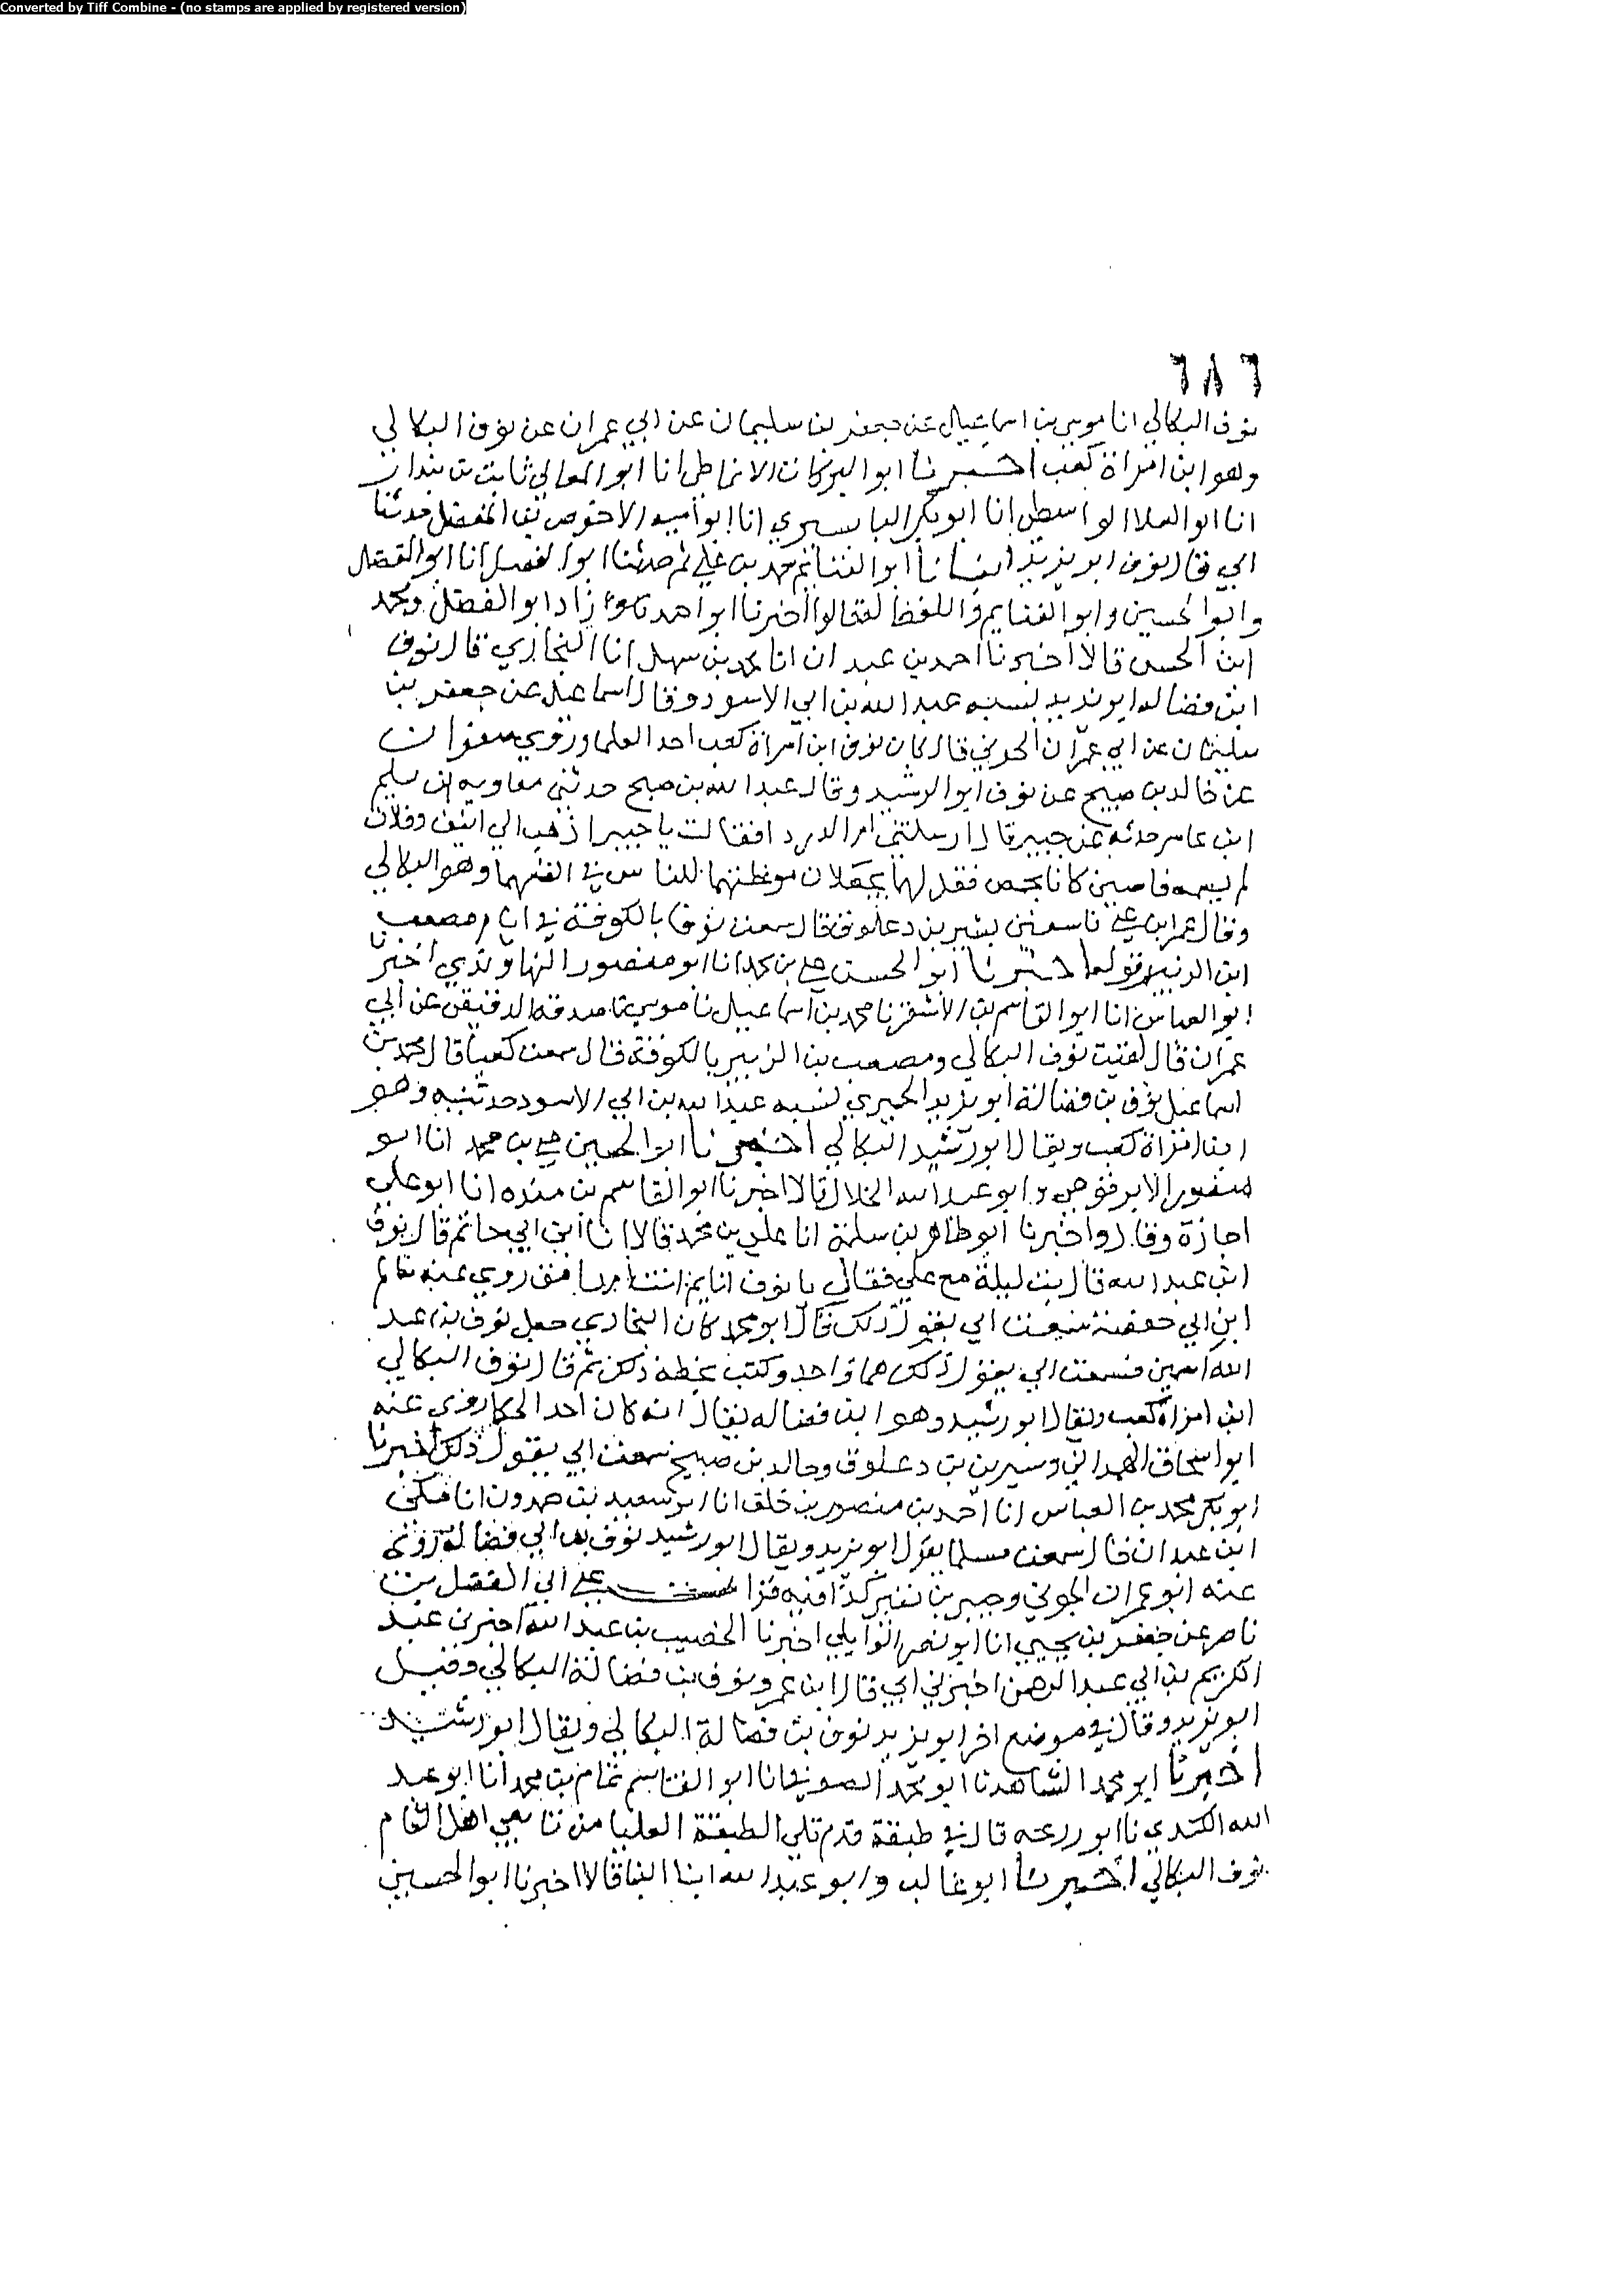 Converted by Tiff Combine - (no stamps are applied by registered version)
٦٨٦
نوف البكالي انا موسى بن اسماعيل عن جعفر بن سليمان عن ابي عمران عن نوف البكالي
وهو ابن امراة كعب اخبرنا ابو البركات الانماطي انا ابو المعالي ثابت بن بندار
انا ابو العلا الواسطي انا ابو بكر البابسيري انا ابو امية الاحوص بن المفضل حدثنا
ابي قال نوف ابو يزيد انبانا ابو الغنائم محمد بن علي ثم حدثنا ابو الفضل انا ابو الفضل
وابو الحسين وابو الغنايم واللفظ له قالوا اخبرنا ابو احمد زاد ابو الفضل ومحمد
ابن الحسن قالا اخبرنا احمد بن عبدان انا محمد بن سهل انا البخاري قال نوف
ابن فضاله ابو يزيد نسبه عبد الله بن ابي الاسود وقال اسماعيل عن جعفر بن
سليمان عن ابي عمران الجوني قال كان نوف ابن امراة كعب احد العلما وروى صفوان
عن خالد بن صبيح عن نوف ابو الرشيد وقال عبد الله بن صبح حدثني معاويه ان سليم
ابن عامر حدثه عن جبير قال ارسلتني ام الدردا فقالت يا جبير اذهب الى نوف وفلان
لم يسمه قاصين كانا بحمص فقل لهما يجعلان موعظتهما للناس في انفسهما وهو البكالي
وقال عمر ابن علي نا سمعت بشير بن دعلوق قال سمعت نوفا بالكوفة في ايام مصعب
ابن الزبير قوله اخبرنا ابو الحسن علي بن محمد انا ابو منصور النهاوندي اخبرنا
ابو العباس انا ابو القاسم بن الاشقر نا محمد بن اسماعيل نا موسى نا صدقه الدقيقي عن ابي
عمران قال لقيت نوف البكالي ومصعب بن الزبير بالكوفة قال سمعت كعبا قال محمد بن
اسماعيل نوف بن فضالة ابو يزيد الحميري نسبه عبد الله بن ابي الاسود حدثنيه وهو
ابن امراة كعب ويقال ابو رشيد البكالي اخبرنا ابو الحسين علي بن محمد انا ابو
منصور الابرقوهي وابو عبد الله الخلال قالا اخبرنا ابو القاسم بن منده انا ابو علي
اجازة وقال واخبرنا ابو طاهر بن سلمة انا علي بن محمد قالا انا ابن ابي حاتم قال نوف
ابن عبد الله قال بت ليلة مع علي فقال يا نوف انايم انت ام رامق روى عنه سالم
ابن ابي حفصة سمعت ابي يقول ذلك قال ابو محمد كان البخاري جعل نوف بن عبد
الله اسمين فسمعت ابي يقول ذلك هما واحد وكتب بخطه ذلك ثم قال نوف البكالي
ابن امراة كعب ويقال ابو رشيد وهو ابن فضاله يقال انه كان احد الحكما روى عنه
ابو اسحاق الهمداني ونسير بن دعلوق وخالد بن صبيح سمعت ابي يقول ذلك اخبرنا
ابو بكر محمد بن العباس انا احمد بن منصور بن خلف انا ابو سعيد بن حمدون انا مكي
ابن عبدان قال سمعت مسلما يقول ابو يزيد ويقال ابو رشيد نوف بن ابي فضالة روى
عنه ابو عمران الجوني وجبير بن نفير كذا فيه قرات على ابي الفضل بن
ناصر عن جعفر بن يحيى انا ابو نصر الوايلي اخبرنا الخصيب بن عبد الله اخبرني عبد
الكريم بن ابي عبد الرحمن اخبرني ابي قال ابن عمرو نوف بن فضالة البكالي وقيل
ابو يزيد وقال في موضع اخر ابو يزيد نوف بن فضالة البكالي ويقال ابو رشيد
اخبرنا ابو محمد الشاهد نا ابو محمد الصوفي انا ابو القاسم تمام بن محمد انا ابو عبد
الله الكندي نا ابو زرعه قال في طبقة قدم تلي الطبقة العليا من تابعي اهل الشام
نوف البكالي اخبرنا ابو غالب وابو عبد الله ابنا البنا قالا اخبرنا ابو الحسين